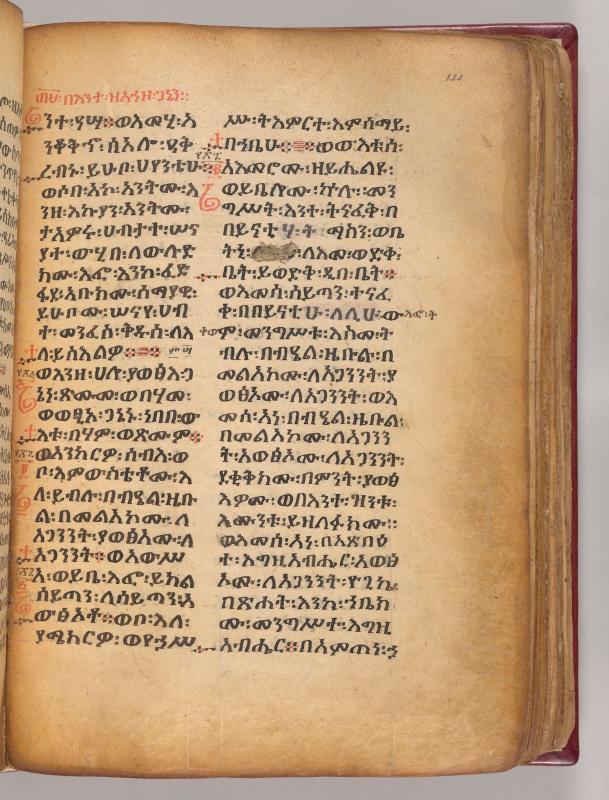 በእንተ፡ዘአኀዘ፡ጋኔን።
ንተ፡የሣ።ወእመሂ፡አ
ንቆቅሖ፡ሰአሎ፡ዐቅ
ረብኑ፡ይሁቦ፡ህየንቴሁ።
ወሶበ፡እንከ፡አንትሙ፡እ
ንዘ፡እኩያን፡አንትሙ፡
ታአምሩ፡ሀብታተ፡ሠና
ያተ፡ውሂበ፡ለውሉድ
ክሙ፡እፎ፡እንከ፡ፈድ
ፋደ፡አቡክሙ፡ሰማያዊ፡
ይሁቦሙ፡ሠናየ፡ሀብ
ተ፡መንፈስ፡ቅዱስ፡ለእ
ለ፡ይስእልዎ።
ወእንዘ፡ሀሎ፡ያወፅእ፡ጋ
ኔነ፡ጽሙመ፡ወበሃመ፡
ወወፂኦ፡ጋኔኑ፡ነበበ፡ው
እቱ፡በሃም፡ወጽሙም።
ወአንከርዎ፡ሰብእ፡ወ
ቦ፡እምውስቴቶሙ፡እ
ለ፡ይብሉ፡በብዔል፡ዜቡ
ል፡በመልአኮሙ፡ለ
አጋንንት፡ያወፅኦሙ፡ለ
አጋንንት።ወአውሥ
አ፡ወይቤ፡እፎ፡ይክል
ሰይጣን፡ለሰይጣን፡አ
ውፅኦቶ።ወቦ፡እለ፡
ያሜክርዎ፡ወየኃሥ
ሡ፡ትእምርተ፡እምሰማይ፡
በኀቤሁ።ወውእቱሰ፡
አእመሮሙ፡ዘይሔልዩ፡
ወይቤሎሙ፡ኵሎ፡መን
ግሥት፡እንተ፡ትናፈቅ፡በ
በይናቲሃ፡ት ማስን፡ወቤ
ትኒ፡ ለእመ፡ወድቀ፡
ቤት፡ይወድቅ፡ዲበ፡ቤት።
ወእመሰ፡ሰይጣን፡ተናፈ
ቀ፡በበይናቲሁ፡ለሊሁ፡እፎ፡ት
ቀውም፡መንግሥቱ፡እስመ፡ት
ብሉ፡በብዔል፡ዜቡል፡በ
መልአኮሙ፡ለአጋንንት፡ያ
ወፅኦሙ፡ለአጋንንት፡ወእ
መሰ፡አነ፡በብዔል፡ዜቡል፡
በመልአኮሙ፡ለአጋንን
ት፡አወፅኦሙ፡ለአጋንንት፡
ደቂቅክሙ፡በምንት፡ያወፅ
እዎሙ፡ወበእንተ፡ዝንቱ፡
እሙንቱ፡ይዘልፉክሙ።
ወእመሰ፡አነ፡በአጽባዕ
ተ፡እግዚአብሔር፡አወፅ
ኦሙ፡ለአጋንንት፡ዮጊኬ
በጽሐት፡እንከ፡ኀቤክ
ሙ፡መንግሥተ፡እግዚ
አብሔር።በአምጣነ፡ኃ